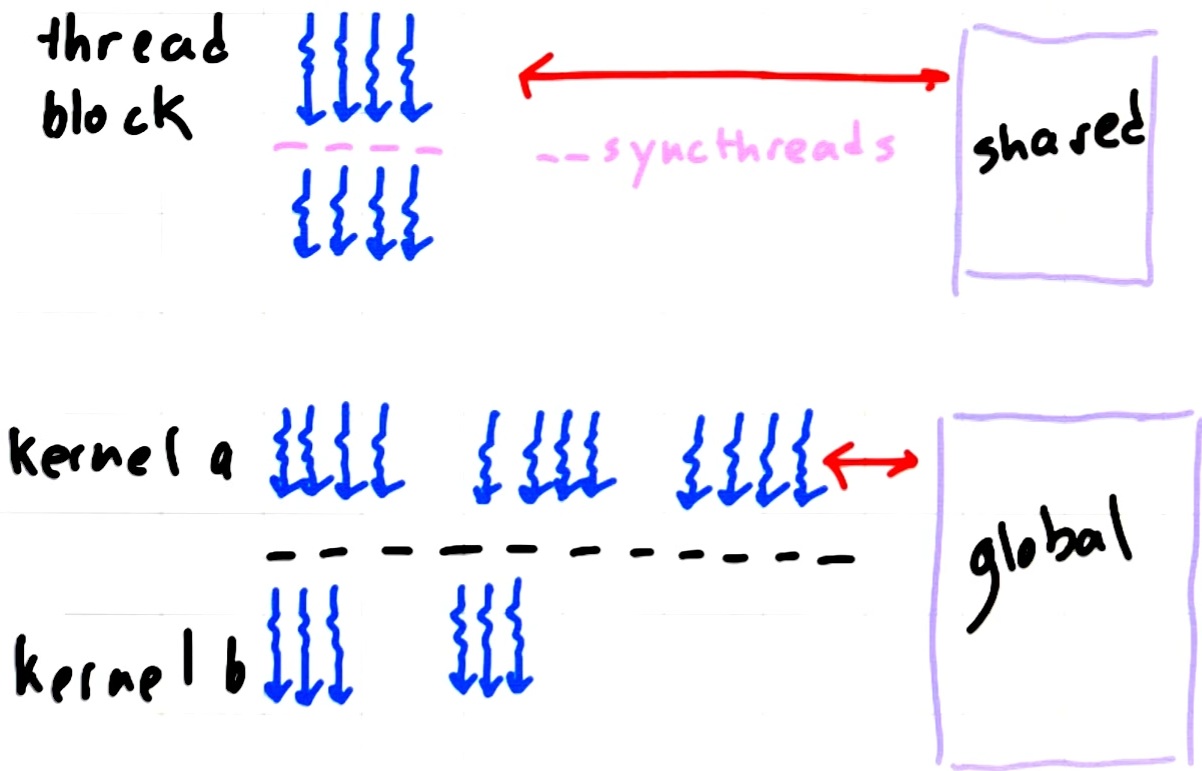 thread
block
--syncthreads
shared
kernel a
global
kernel b